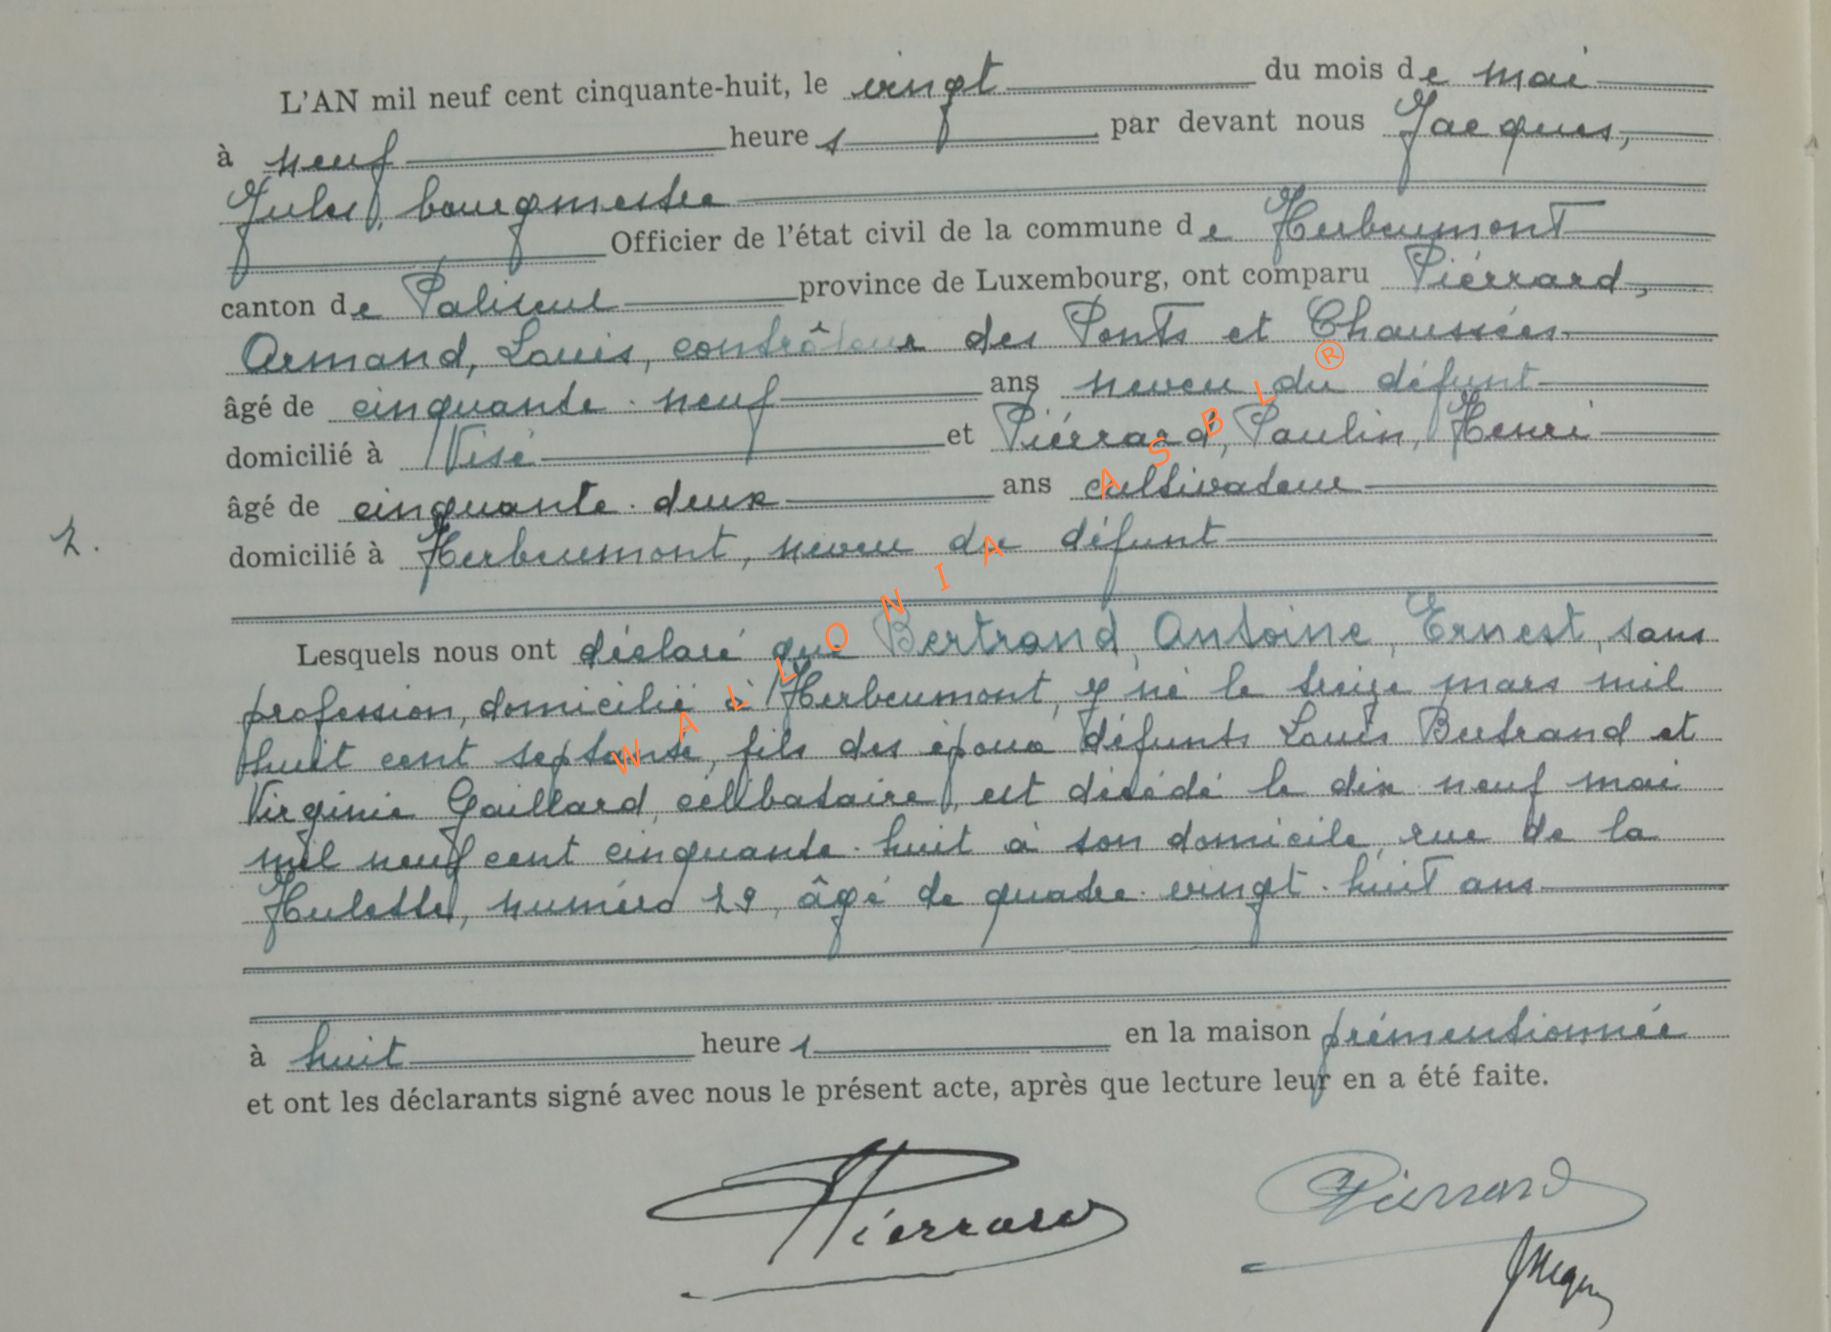 L'AN mil neuf cent cinquante-huit, le vingt du mois de mai
à neuf heures par devant nous Jacques,
Jules, bourgmestre
Officier de l'état civil de la commune de Herbeumont
canton de Paliseul province de Luxembourg, ont comparu Piérrard,
Armand, Louis, contrôleur des Ponts et Chaussées.
âgé de cinquante-neuf ans neveu du défunt
domicilié à Visé et Piérrard, Paulin, Henri
âgé de cinquante-deux ans cultivateur
domicilié à Herbeumont, neveu du défunt
2.
Lesquels nous ont déclaré que Bertrand, Antoine, Ernest, sans
profession, domicilié à Herbeumont, y né le treize mars mil
huit cent septante, fils des époux défunts Louis Bertrand et
Virginie Gaillard, célibataire, est décédé le dix neuf mai
mil neuf cent cinquante-huit à son domicile, rue de la
Hulette, numéro 29, âgé de quatre-vingt-huit ans
à huit heures en la maison prémentionnée
et ont les déclarants signé avec nous le présent acte, après que lecture leur en a été faite.
Pierrard
Pierrard
Jacques
WALLONIA ASBL ®